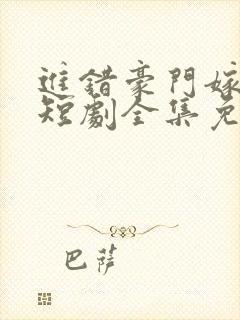 進錯豪門嫁
短劇全集免
巴薩